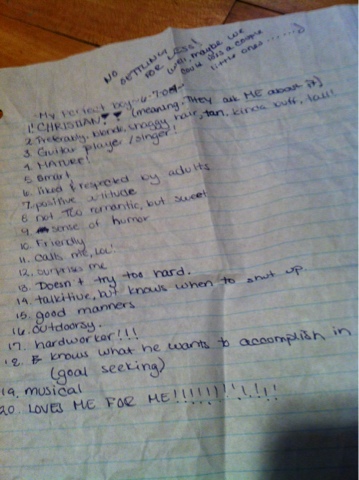 NO SETTLING FOR LESS!
(well, maybe we
could miss a couple
little ones.......)
My Perfect boy-6-7-05
1. CHRISTIAN♥♥ (meaning, They ask ME about it)
2. Preferably, blonde, shaggy hair, tan, kinda buff, tall!
3. Guitar player/singer!
4. MATURE!
5. Smart
6. liked & respected by adults
7. positive attitude
8. not TOO romantic, but sweet
9. sense of humor
10. Friendly
11. calls me, lol!
12. surprises me
13. Doesn't try too hard.
14. talkitive, but knows when to shut up.
15. good manners
16. outdoorsy.
17. hardworker!!!
18. knows what he wants to accomplish in
(goal seeking)
19. musical
20. LOVES ME FOR ME!!!!!!!!!!!!!